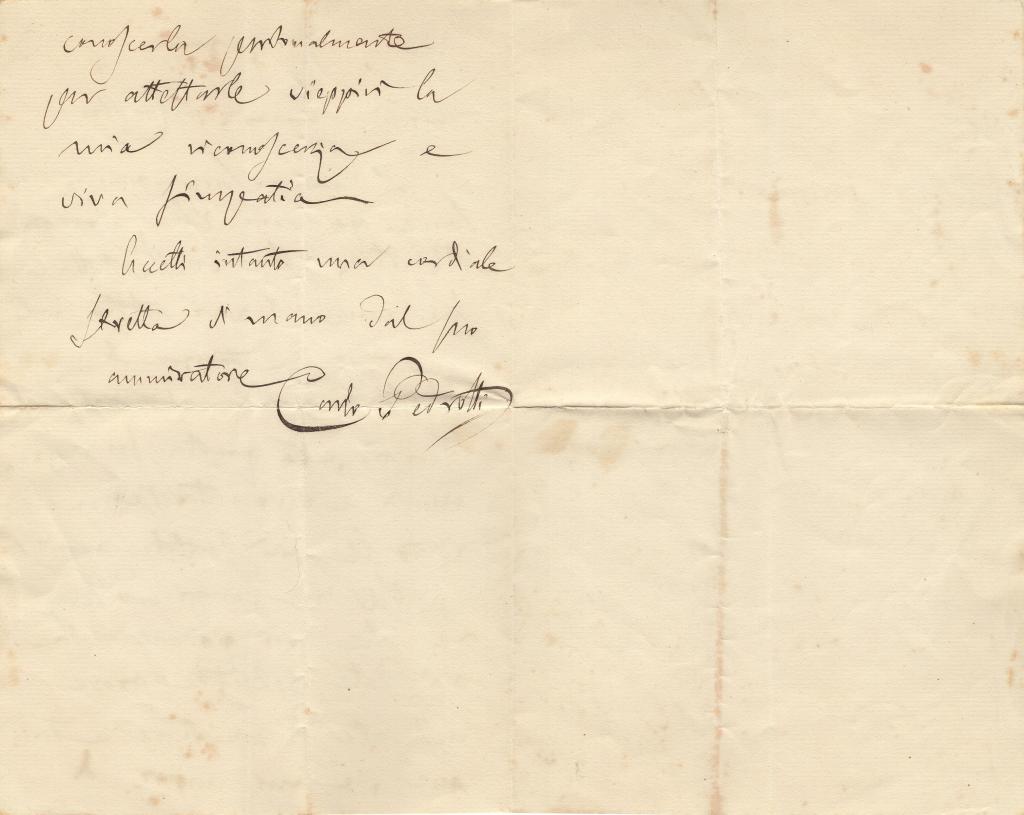 conoscerla personalmente
per attestarle vieppiù la
mia riconoscenza e
viva simpatia
Accetti intanto una cordiale
stretta di mano dal suo
ammiratore
Carlo Pedrotti